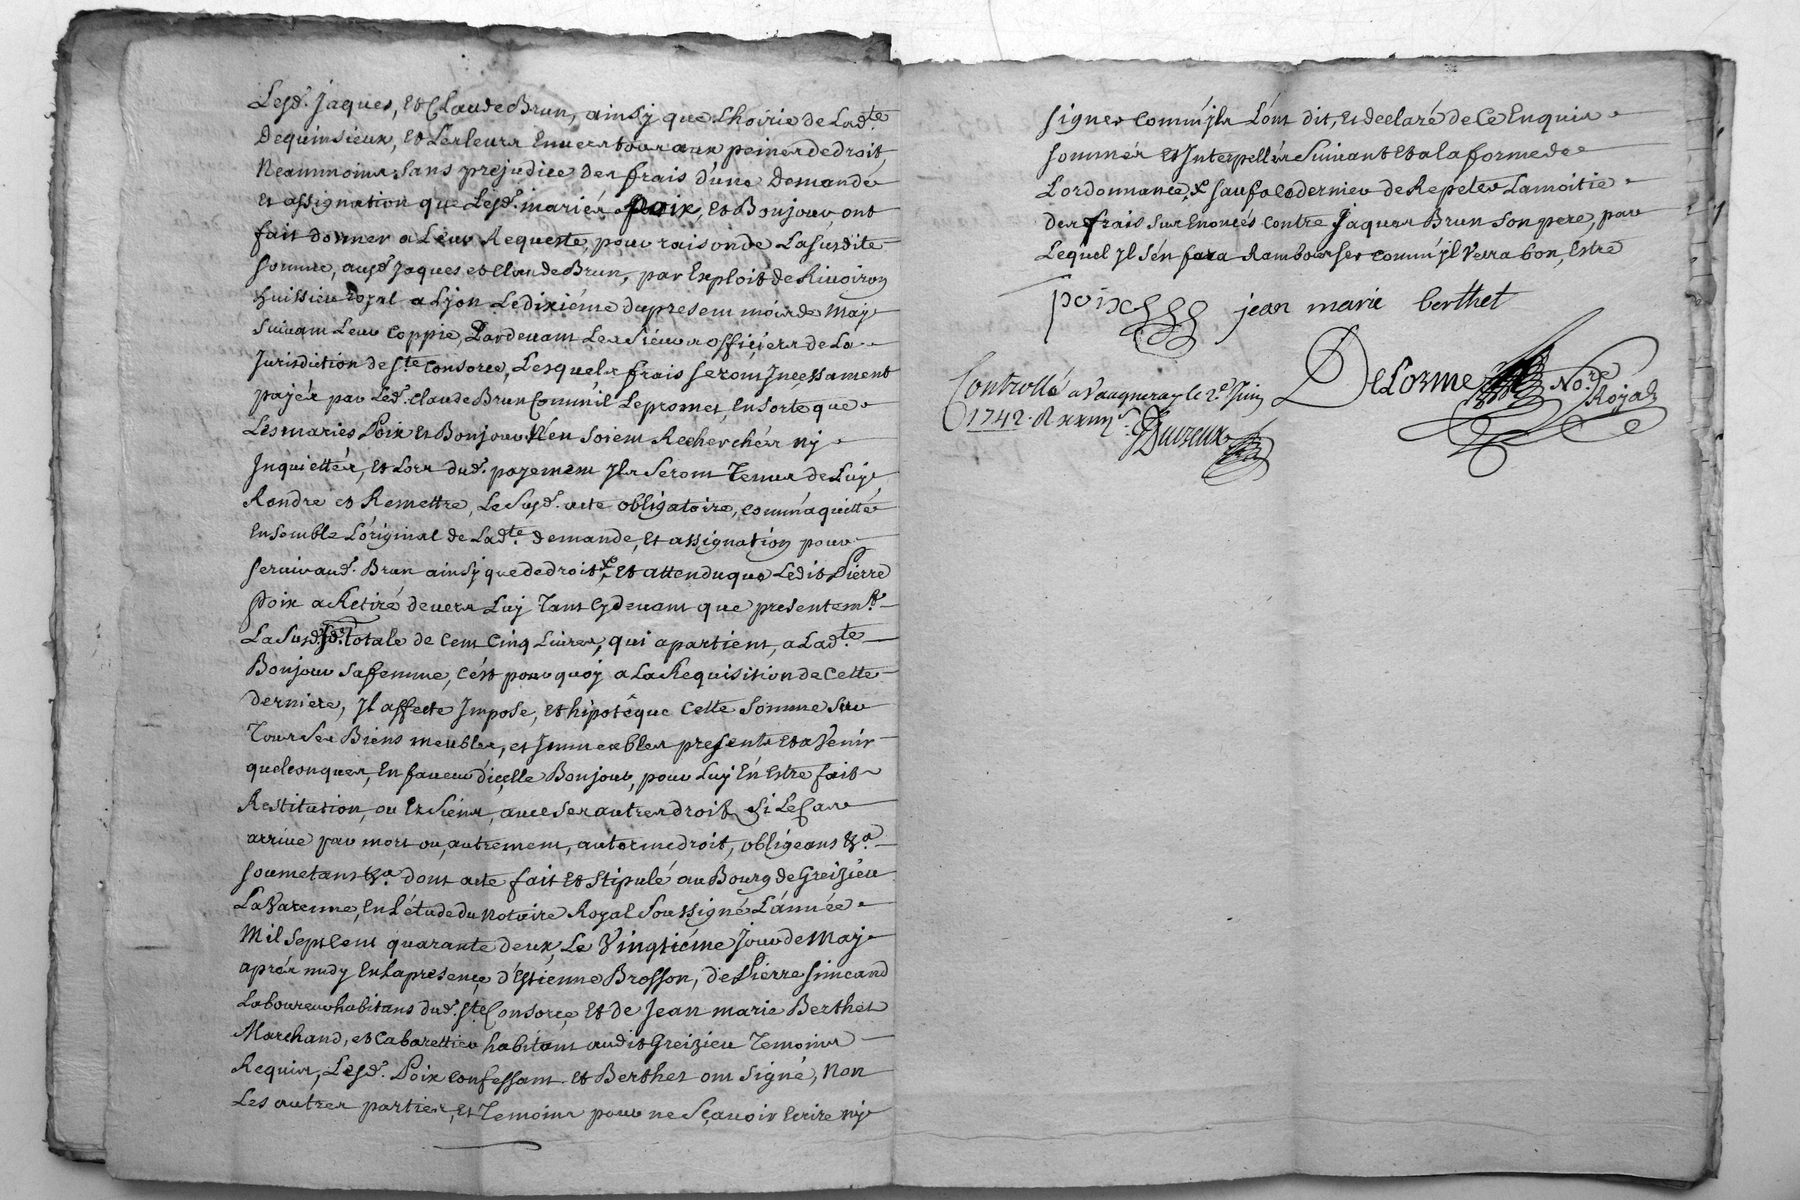 Lesd. Jaques, et Claude Brun, ainsy que Lhoirie de Ladte.
Dequinsieux, et Les leurs Envers tous aux peines de droit,
Neanmoins sans prejudice des frais d'une Demande
et assignation que Lesd. mariés poix, et Bonjour ont
fait donner a Leur Requeste, pour raison de La susdite
somme, ausd. Jaques et Claude Brun, par Exploit de Rivoiron
huissier royal a Lyon Le dixiéme du present mois de May
suivant Leur Coppie, Pardevant Les Sieurs officiers de La
Jurisdiction de Ste Consorce, Lesquels frais seront Incessament
payés par Led. Claude Brun Comm'il Le promet, En sorte que
Les mariés Poix et Bonjour N'en soient Recherchés ny
Inquiettés, et Lors dud. payement Ils seront Tenus de Luy
Randre et Remettre, Le susd. acte obligatoire, comm'aquitté
Ensemble L'original de Ladte. demande, et assignation pour
servir aud. Brun ainsy que de droit, x et attendu que Ledit Pierre
Poix a Retiré devers Luy Tant Cydevant que presentemt.
La susd. se. totale de Cent Cinq Livres, qui apartient, a Ladte.
Bonjour sa femme, C'est pourquoy a La Requisition de Cette
derniere, Il affecte Impose, et hipotêque Cette somme sur
Tous ses Biens meubles, et Immeubles presents et a Venir
quelconques, En faveur d'icelle Bonjour, pour Luy En Estre fait
Restitution, ou Es Siens, avec ses autres droits si Le Cas
arrive par mort ou, autrement, au terme droit, obligeans &a.
soumetans &a. dont acte fait et stipulé au Bourg de Greizieu
La Varenne, En L'étude du Notaire Royal soussigné L'année
Mil sept Cent quarante deux, Le Vingtiéme Jour de May
aprés midy En La presence d'Estienne Brosson, de Pierre simeand
Laboureurs habitans dud. Ste Consorce et de Jean marie Berthet
Marchand, et Cabarettier habitant audit Greizieu Temoins
Requis, Lesd. Poix confessant et Berthet ont signé, Non
Les autres parties, et Temoins pour ne sçavoir Ecrire ny
signer comm'ils L'ont dit, et declaré de Ce Enquis
sommés et Interpellés suivant et a la forme de
L'ordonnance, x sauf a ce dernier de Repeter La moitie
des frais sus Enoncés Contre Jaques Brun son pere, par
Lequel Il s'en fera Rambourser comm'il Verra bon, Estre
poix jean marie berthet
De Lorme No.re Royal
Controllé a Vaugneray le 2e. Juin
1742. R